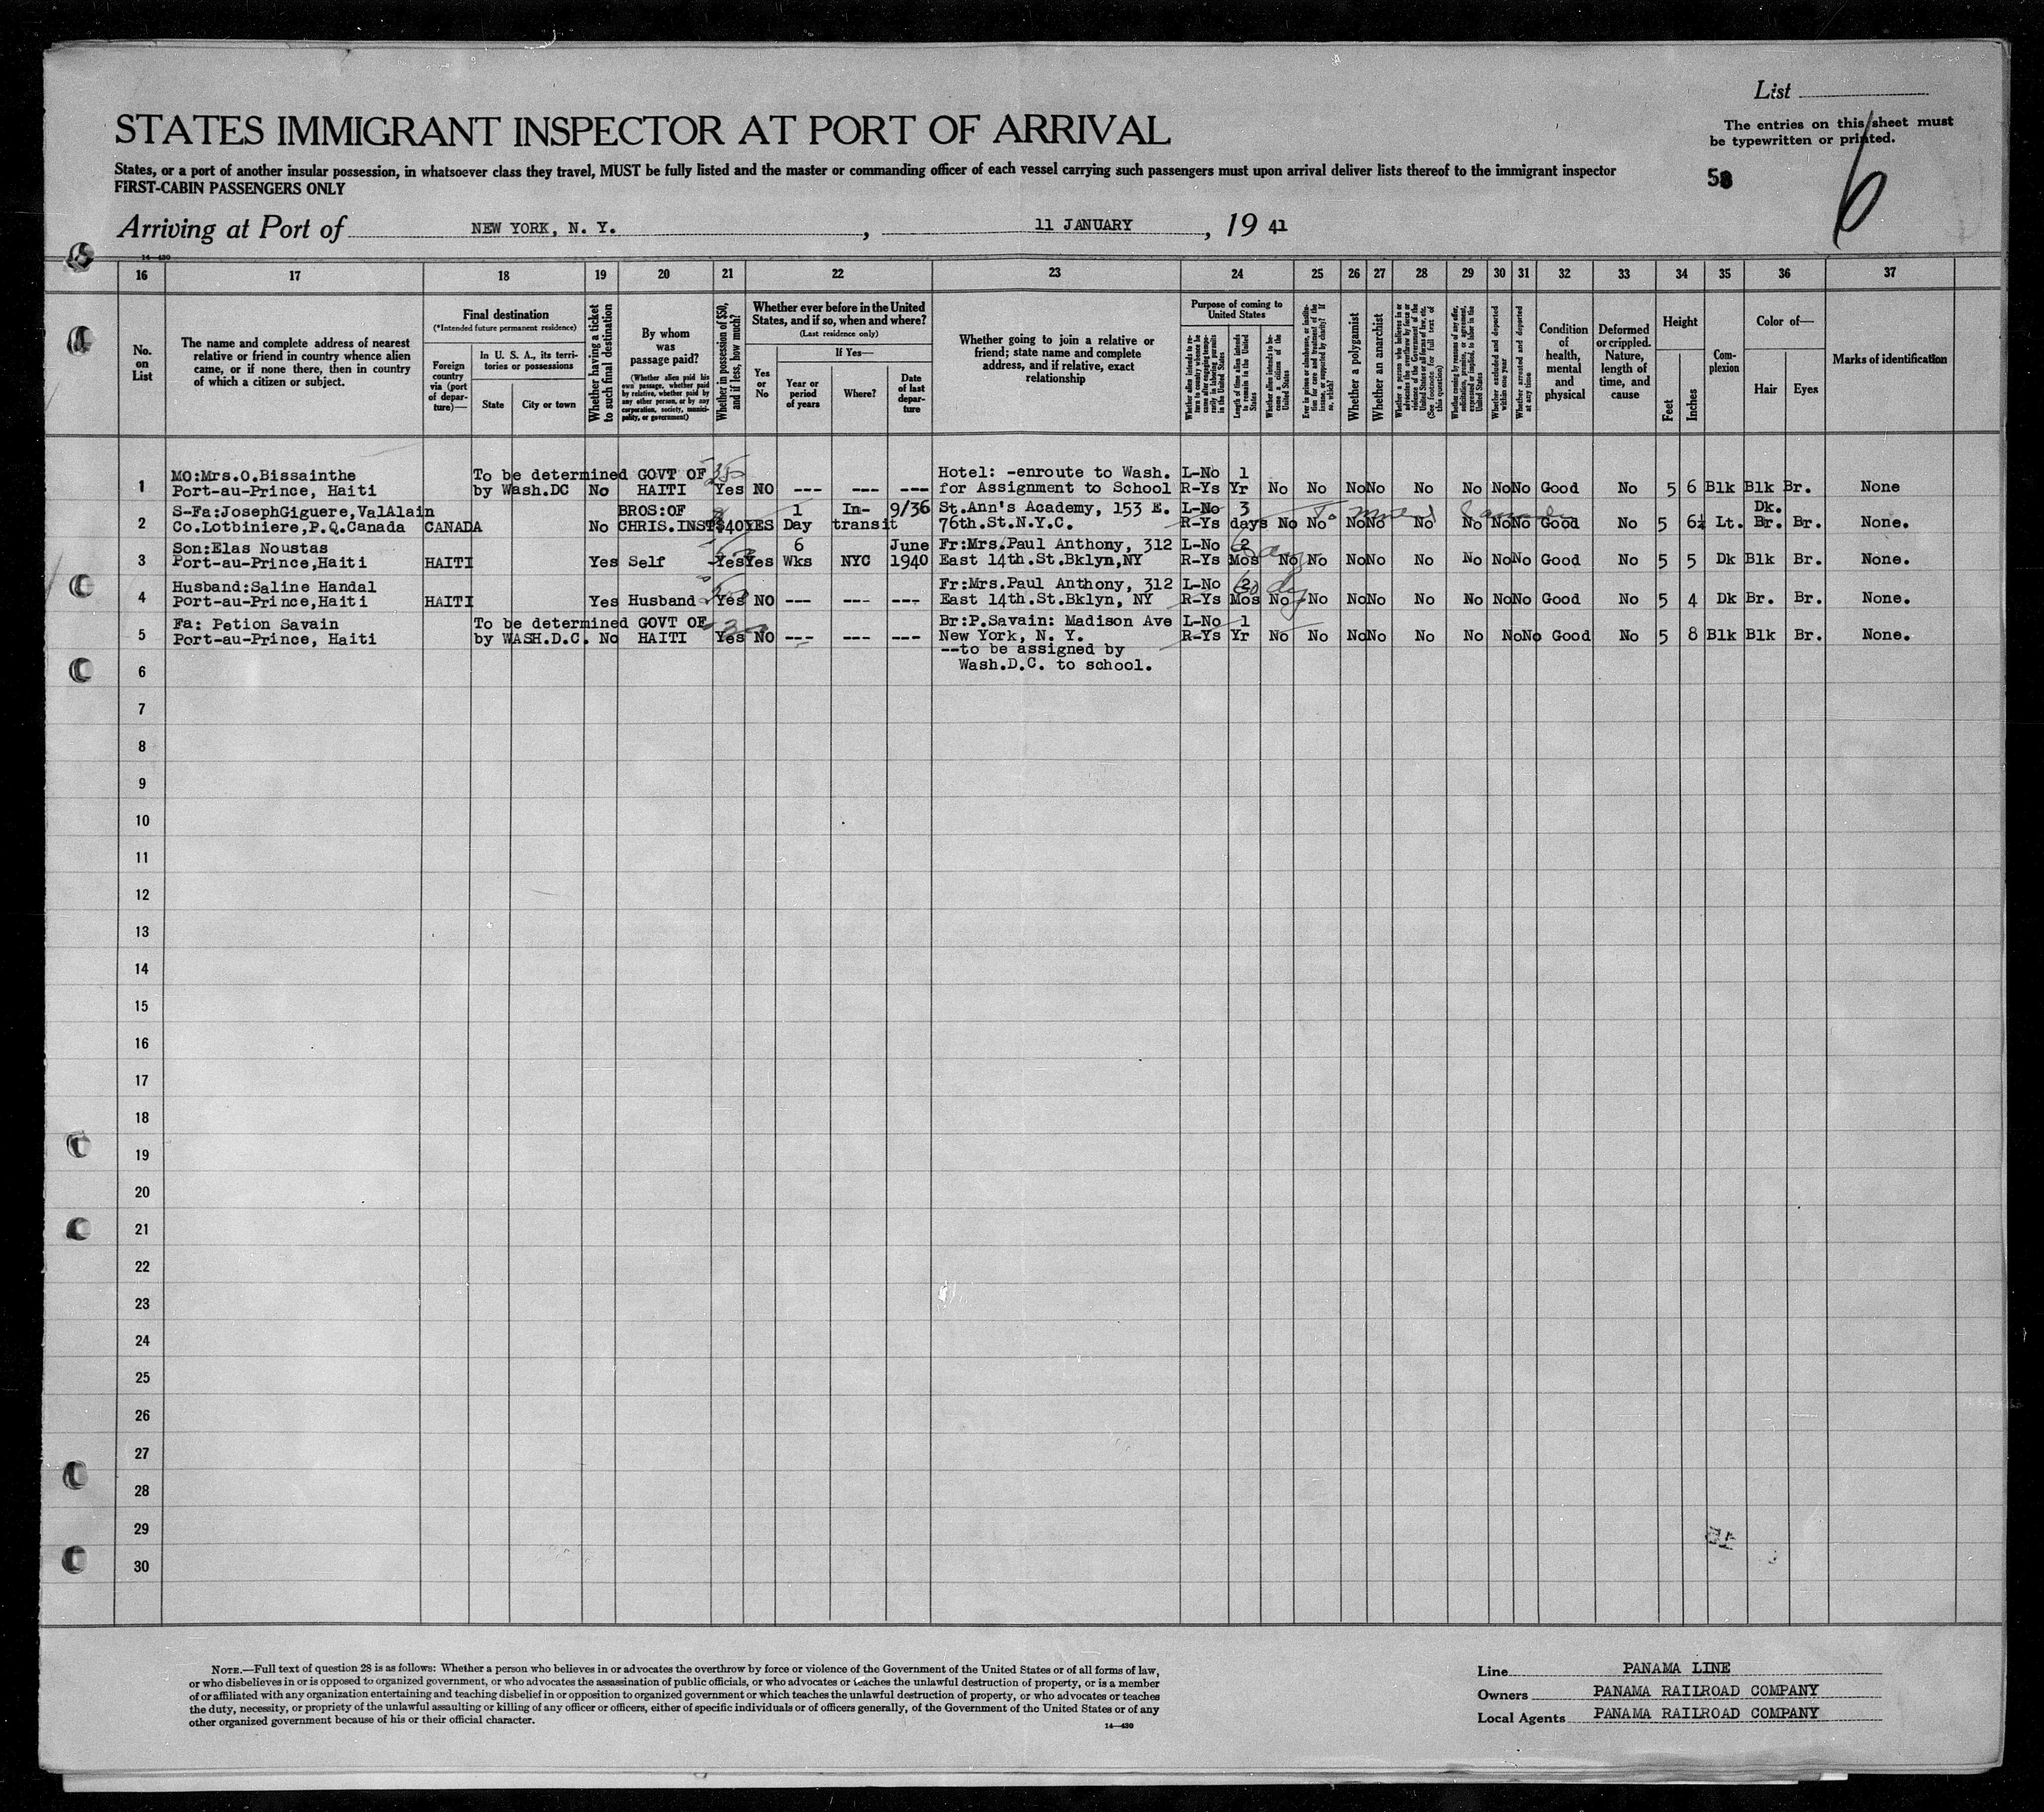 List
STATES IMMIGRANT INSPECTOR AT PORT OF ARRIVAL
The entries on this sheet must
be typewritten or printed.
States, or a port of another insular possession, in whatsoever class they travel, MUST be fully listed and the master or commanding officer of each vessel carrying such passengers must upon arrival deliver lists thereof to the immigrant inspector
FIRST-CABIN PASSENGERS ONLY
6
Arriving at Port of NEW YORK, N. Y. , 11 JANUARY , 19 41
14—430
16 17 18 19 20 21 22 23 24 25 26 27 28 29 30 31 32 33 34 35 36 37
No. on List
The name and complete address of nearest relative or friend in country whence alien came, or if none there, then in country of which a citizen or subject.
Final destination
(*Intended future permanent residence)
Foreign country via (port of departure)—
In U. S. A., its territories or possessions
State
City or town
Whether having a ticket to such final destination
By whom was passage paid?
(Whether alien paid his own passage, whether paid by relative, whether paid by any other person, or by any corporation, society, municipality, or government)
Whether in possession of $50, and if less, how much?
Whether ever before in the United States, and if so, when and where?
(Last residence only)
Yes or No
If Yes—
Year or period of years
Where?
Date of last departure
Whether going to join a relative or friend; state name and complete address, and if relative, exact relationship
Purpose of coming to United States
Length of time alien intends to remain in the United States
Whether alien intends to become a citizen of the United States
Whether a polygamist
Whether an anarchist
Whether excluded and deported within one year
Whether arrested and deported at any time
Condition of health, mental and physical
Deformed or crippled. Nature, length of time, and cause
Height
Feet
Inches
Complexion
Color of—
Hair
Eyes
Marks of identification
1 MO:Mrs.O.Bissainthe To be determined GOVT OF Hotel: -enroute to Wash. L-No 1
Port-au-Prince, Haiti by Wash.DC No HAITI Yes NO --- --- --- for Assignment to School R-Ys Yr No No No No No No No No Good No 5 6 Blk Blk Br. None
2 S-Fa:JosephGiguere,ValAlain BROS:OF 1 In- 9/36 St.Ann's Academy, 153 E. L-No 3 Dk.
Co.Lotbiniere,P.Q.Canada CANADA No CHRIS.INST $40 YES Day transit 76th.St.N.Y.C. R-Ys days No No No No No No No No Good No 5 6½ Lt. Br. Br. None.
3 Son:Elas Noustas 6 June Fr:Mrs.Paul Anthony, 312 L-No 2
Port-au-Prince,Haiti HAITI Yes Self Yes Yes Wks NYC 1940 East 14th.St.Bklyn,NY R-Ys Mos No No No No No No No No Good No 5 5 Dk Blk Br. None.
4 Husband:Saline Handal Fr:Mrs.Paul Anthony, 312 L-No 2
Port-au-Prince,Haiti HAITI Yes Husband Yes NO --- --- --- East 14th.St.Bklyn, NY R-Ys Mos No No No No No No No No Good No 5 4 Dk Br. Br. None.
5 Fa: Petion Savain To be determined GOVT OF Br:P.Savain: Madison Ave L-No 1
Port-au-Prince, Haiti by WASH.D.C. No HAITI Yes NO --- --- --- New York, N. Y. R-Ys Yr No No No No No No No No Good No 5 8 Blk Blk Br. None.
--to be assigned by
6 Wash.D.C. to school.
7
8
9
10
11
12
13
14
15
16
17
18
19
20
21
22
23
24
25
26
27
28
29
30
NOTE.—Full text of question 28 is as follows: Whether a person who believes in or advocates the overthrow by force or violence of the Government of the United States or of all forms of law,
or who disbelieves in or is opposed to organized government, or who advocates the assassination of public officials, or who advocates or teaches the unlawful destruction of property, or is a member
of or affiliated with any organization entertaining and teaching disbelief in or opposition to organized government or which teaches the unlawful destruction of property, or who advocates or teaches
the duty, necessity, or propriety of the unlawful assaulting or killing of any officer or officers, either of specific individuals or of officers generally, of the Government of the United States or of any
other organized government because of his or their official character.
14—430
Line PANAMA LINE
Owners PANAMA RAILROAD COMPANY
Local Agents PANAMA RAILROAD COMPANY